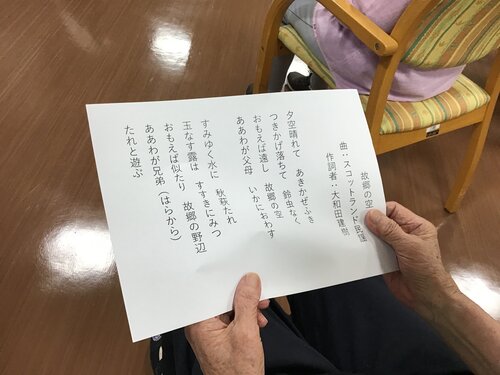 故郷の空
曲：スコットランド民謡
作詞者：大和田建樹
夕空晴れて　あきかぜふき
つきかげ落ちて　鈴虫なく
おもえば遠し　故郷の空
ああわが父母　いかにおわす
すみゆく水に　秋萩たれ
玉なす露は　すすきにみつ
おもえば似たり　故郷の野辺
ああわが兄弟（はらから）
たれと遊ぶ